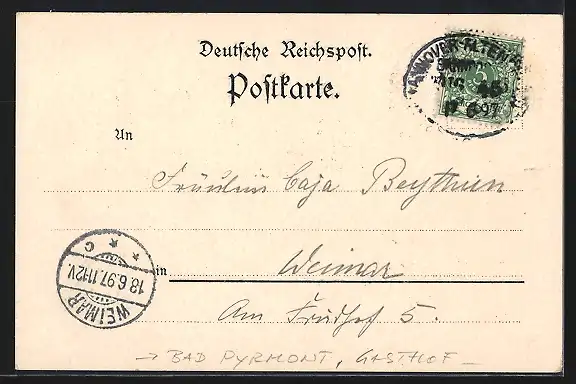 Deutsche Reichspost.
Postkarte.
HANNOVER-ALTENBEKEN
An
Fräulein Caja Beythien
in Weimar
Am Friedhof 5.
WEIMAR
18.6.97.11-12V.
* * C
→ BAD PYRMONT, GASTHOF –